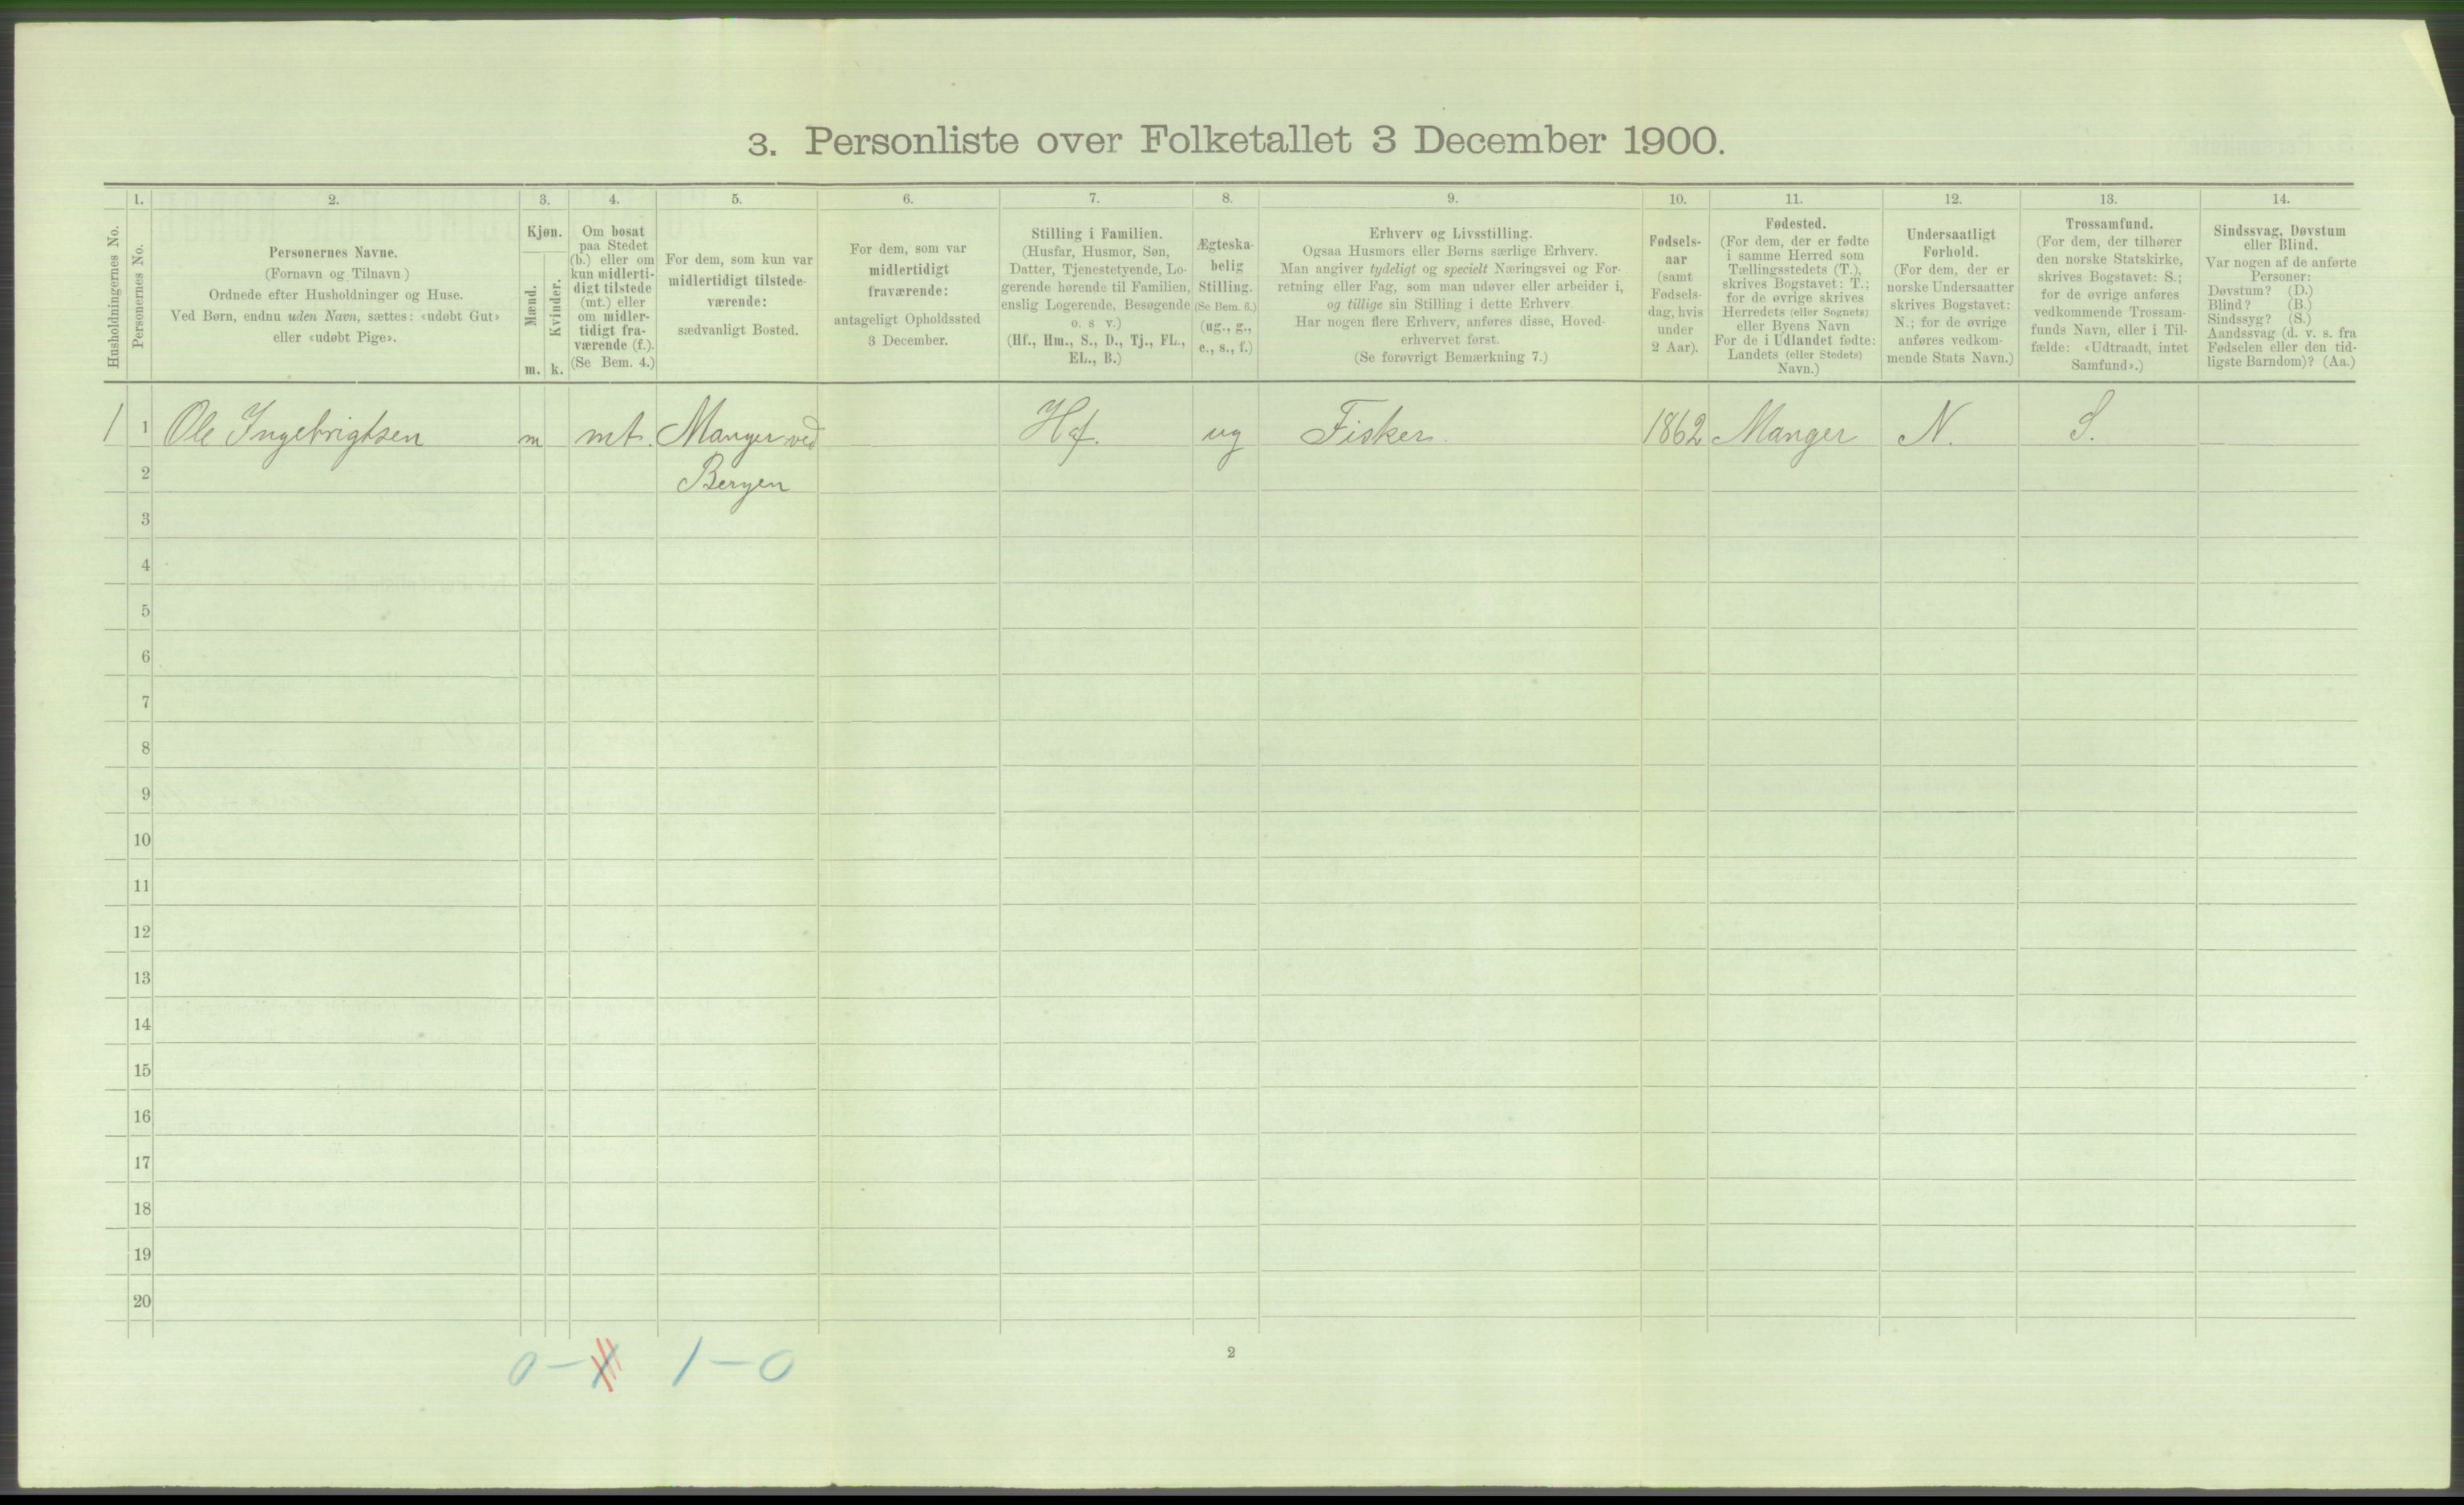 3. Personliste over Folketallet 3 December 1900.
1. 2. 3. 4. 5. 6. 7. 8. 9. 10. 11. 12. 13. 14.
Husholdningernes No.
Personernes No.
Personernes Navne.
(Fornavn og Tilnavn)
Ordnede efter Husholdninger og Huse.
Ved Børn, endnu uden Navn, sættes: «udøbt Gut»
eller «udøbt Pige».
Kjøn.
Mænd.
Kvinder.
m. k.
Om bosat
paa Stedet
(b.) eller om
kun midlerti-
digt tilstede
(mt.) eller
om midler-
tidigt fra-
værende (f.).
(Se Bem. 4.)
For dem, som kun var
midlertidigt tilstede-
værende:
sædvanligt Bosted.
For dem, som var
midlertidigt
fraværende:
antageligt Opholdssted
3 December.
Stilling i Familien.
(Husfar, Husmor, Søn,
Datter, Tjenestetyende, Lo-
gerende hørende til Familien,
enslig Logerende, Besøgende
o. s v.)
(Hf., Hm., S., D., Tj., FL.,
EL., B.)
Ægteska-
belig
Stilling.
(Se Bem. 6.)
(ug., g.,
e., s., f.)
Erhverv og Livsstilling.
Ogsaa Husmors eller Børns særlige Erhverv.
Man angiver tydeligt og specielt Næringsvei og For-
retning eller Fag, som man udøver eller arbeider i,
og tillige sin Stilling i dette Erhverv.
Har nogen flere Erhverv, anføres disse, Hoved-
erhvervet først.
(Se forøvrigt Bemærkning 7.)
Fødsels-
aar
(samt
Fødsels-
dag, hvis
under
2 Aar).
Fødested.
(For dem, der er fødte
i samme Herred som
Tællingsstedets (T.),
skrives Bogstavet: T.;
for de øvrige skrives
Herredets (eller Sognets)
eller Byens Navn
For de i Udlandet fødte:
Landets (eller Stedets)
Navn.)
Undersaatligt
Forhold.
(For dem, der er
norske Undersaatter
skrives Bogstavet:
N.; for de øvrige
anføres vedkom-
mende Stats Navn.)
Trossamfund.
(For dem, der tilhører
den norske Statskirke,
skrives Bogstavet: S.;
for de øvrige anføres
vedkommende Trossam-
funds Navn, eller i Til-
fælde: «Udtraadt, intet
Samfund».)
Sindssvag, Døvstum
eller Blind.
Var nogen af de anførte
Personer:
Døvstum? (D.)
Blind? (B.)
Sindssyg? (S.)
Aandssvag (d. v. s. fra
Fødselen eller den tid-
ligste Barndom)? (Aa.)
1 1 Ole Ingebrigtsen m mt. Manger ved Hf. ug Fisker. 1862 Manger N. S.
2 Bergen
3
4
5
6
7
8
9
10
11
12
13
14
15
16
17
18
19
20
0-1 1-0
2